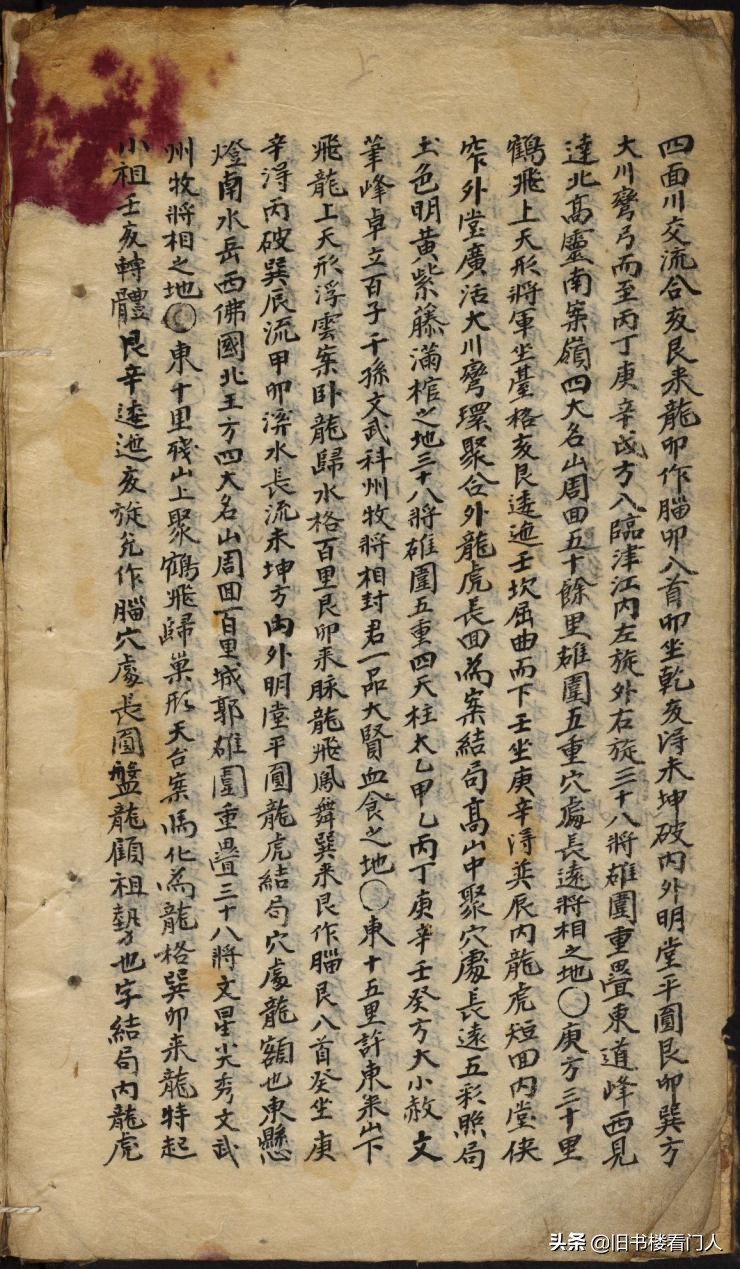 四面川交流合亥艮来龍卯作腦卯入首卯坐乾亥淂未坤破内外明堂平圓艮卯巽方
大川彎弓而至丙丁庚辛戌方入臨津江内左旋外右旋三十八將雄圍重疊東道峰西見
達北髙靈南案嶺四大名山周囬五十餘里雄圍五重穴處長遠將相之地○庚方三十里
鶴飛上天形將軍坐䑓格亥艮逶迤壬坎屈曲而下壬坐庚辛淂巽辰内龍虎短囬内堂俠
窄外堂廣活大川彎環聚合外龍虎長囬為案結局髙山中聚穴處長遠五彩照局
土色明黄紫藤滿棺之地三十八將雄圍五重四天柱太乙甲乙丙丁庚辛壬癸方大小赦文
筆峰卓立百子千孫文武科州牧將相封君一品大賢血食之地○東十五里許東米山下
飛龍上天形浮雲案卧龍歸水格百里艮卯来脉龍飛鳳舞巽来艮作腦艮入首癸坐庚
辛淂丙破巽辰流甲卯渰水長流未坤方內外明堂平圓龍虎結局穴處龍額也東懸
燈南水岳西佛國北王方四大名山周囬百里城郭雄圍重疊三十八將文星尖秀文武
州牧將相之地○東十里殘山上聚鶴飛歸巢形天台案化為龍格巽卯来龍特起
小祖壬亥轉體艮辛逶迤亥旋兊作腦穴處長圓盤龍顧祖勢也字結局内龍虎
头条 @旧书楼看门人